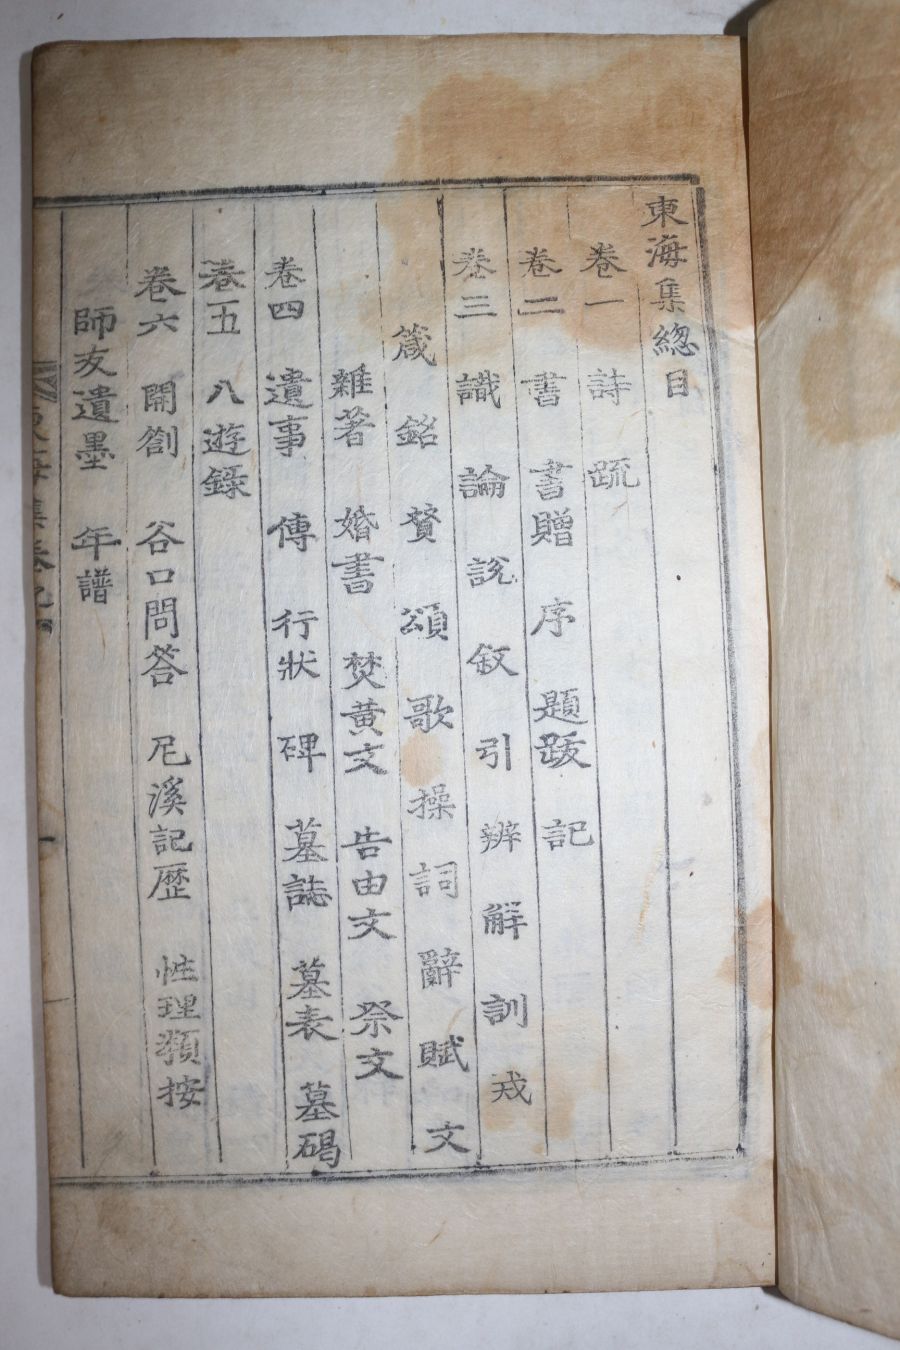 東海集總目
卷一 詩 疏
卷二 書 書贈 序 題跋 記
卷三 識 論 說 敘 引 辨 解 訓 戒
箴 銘 賛 頌 歌 操 詞 辭 賦 文
雜著 婚書 焚黃文 告由文 祭文
卷四 遺事 傳 行狀 碑 墓誌 墓表 墓碣
卷五 八遊錄
卷六 開劄 谷口問答 尼溪記歷 性理類按
師友遺墨 年譜
東海集卷之
一